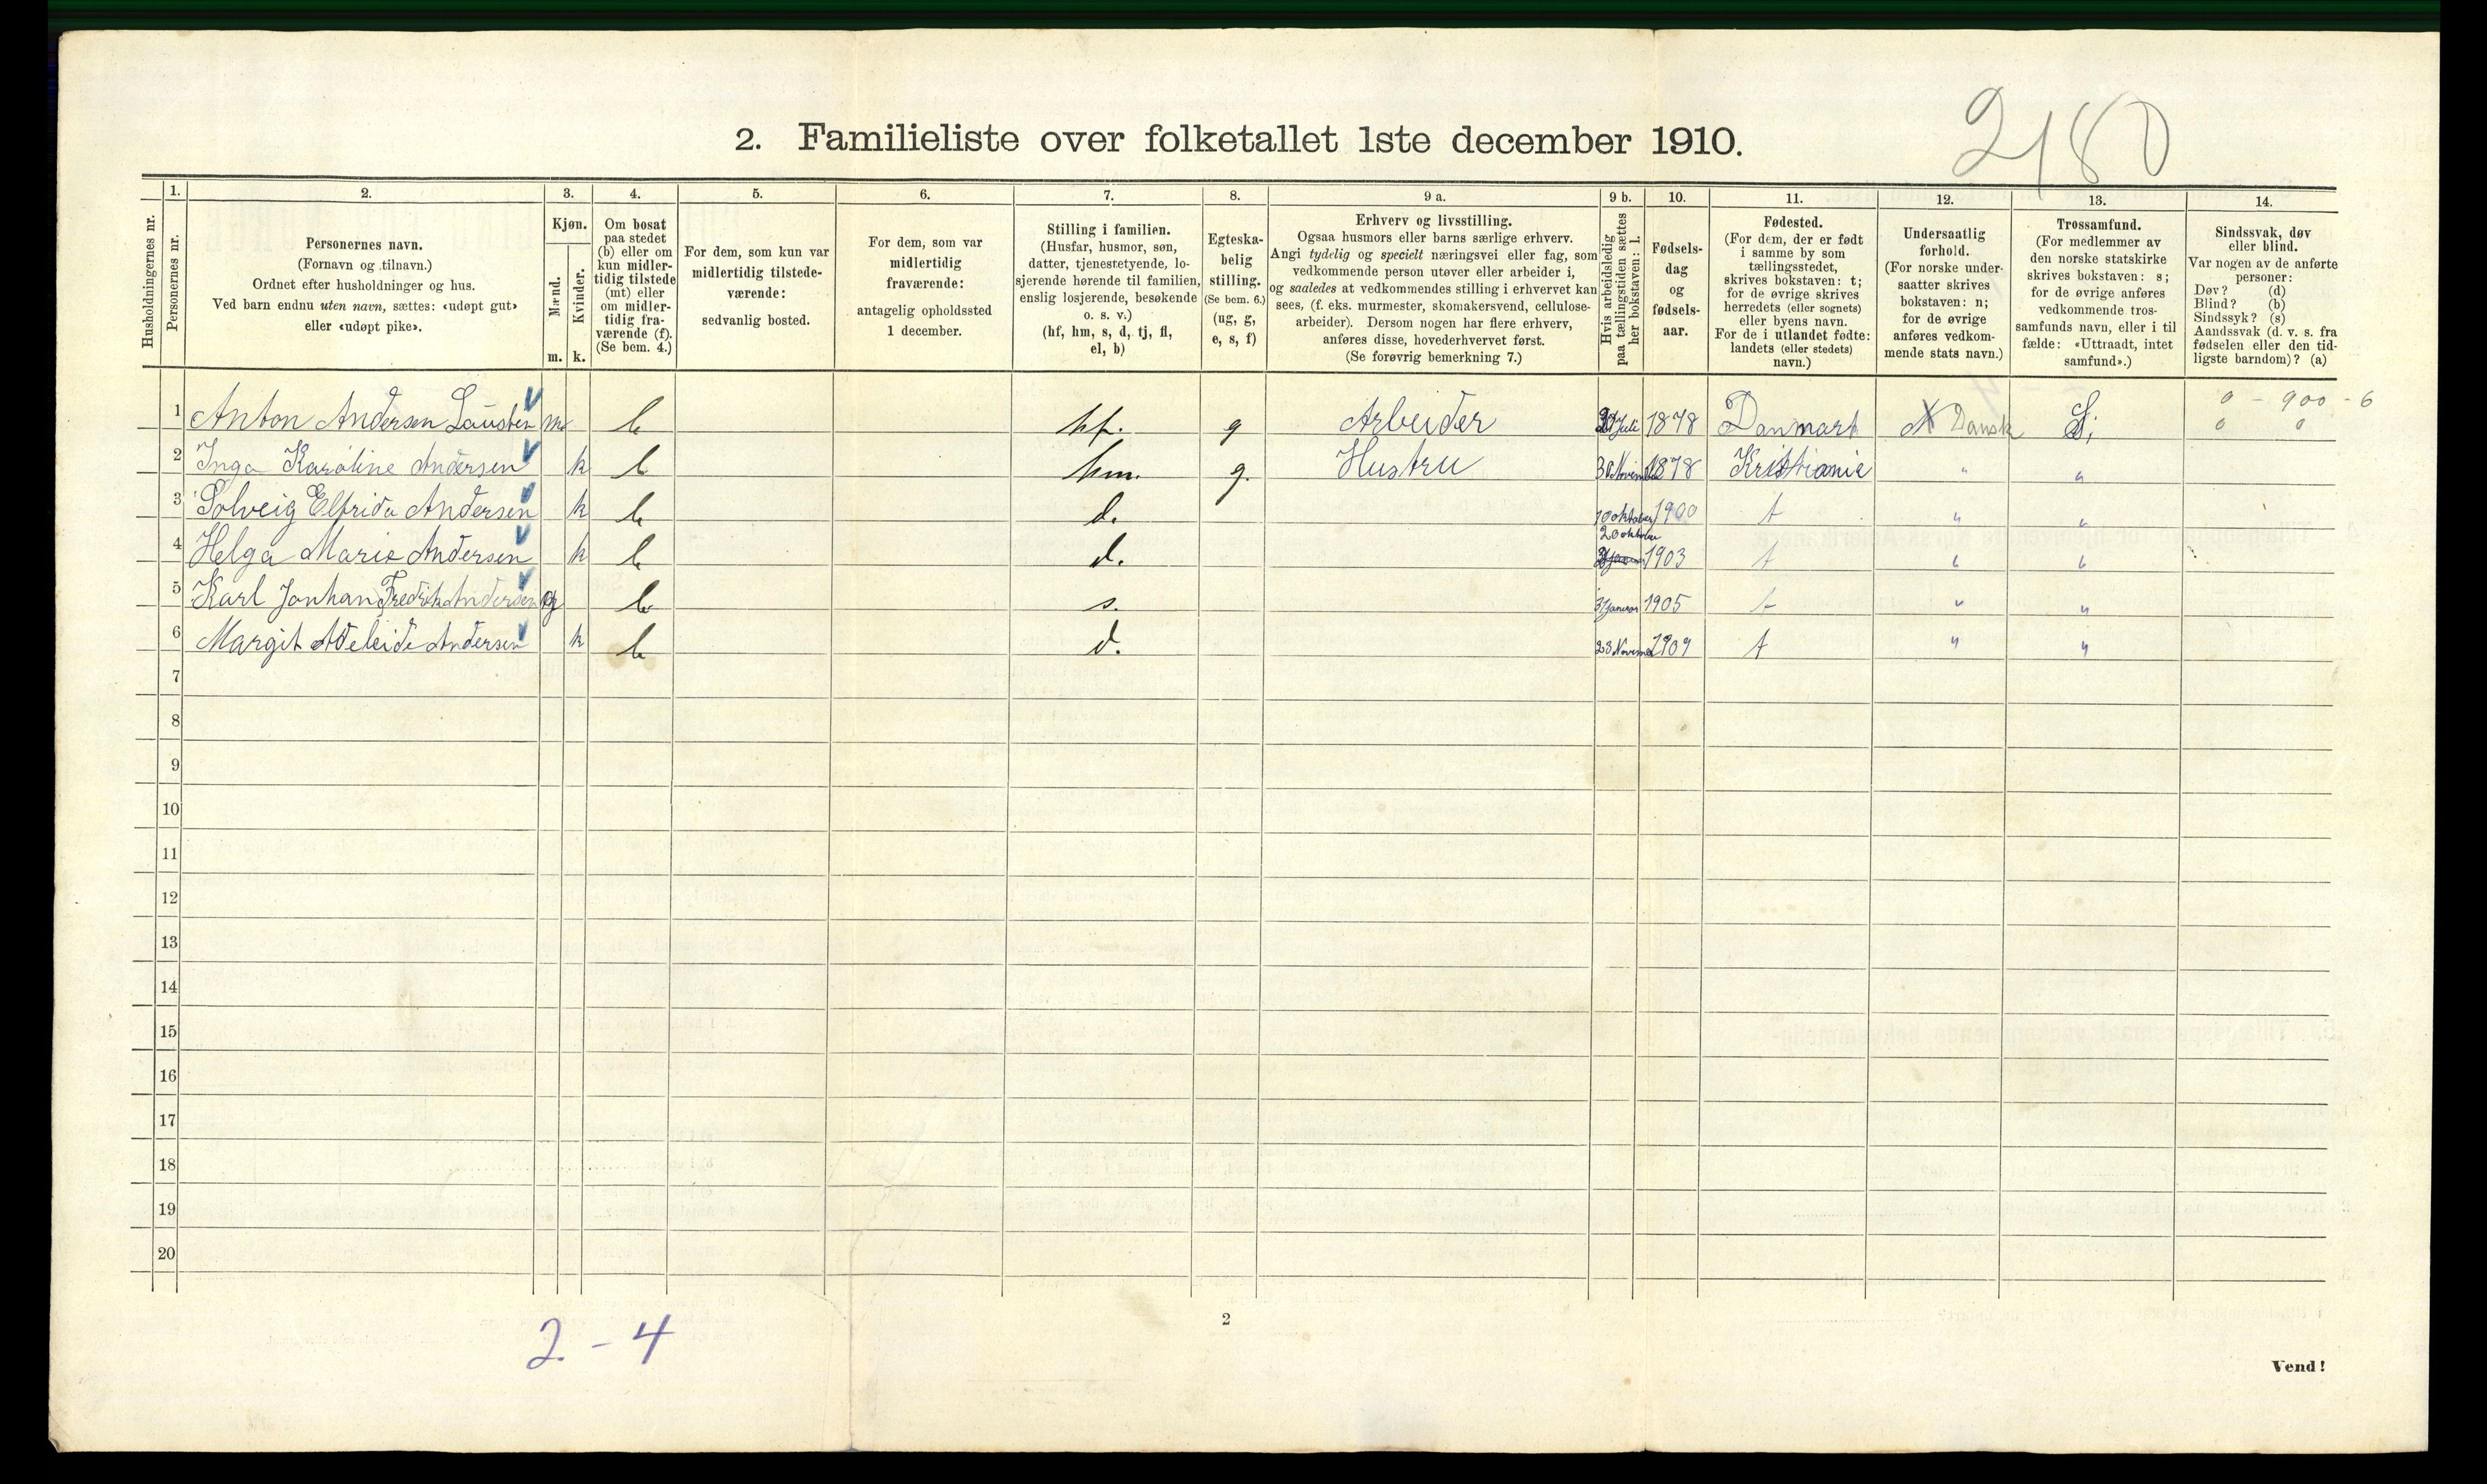 2180
2. Familieliste over folketallet 1ste december 1910.
Husholdningernes nr.
1.
Personernes nr.
2.
Personernes navn.
(Fornavn og tilnavn.)
Ordnet efter husholdninger og hus.
Ved barn endnu uten navn, sættes: «udøpt gut»
eller «udøpt pike».
3.
Kjøn.
Mænd.
Kvinder.
m. k.
4.
Om bosat
paa stedet
(b) eller om
kun midler-
tidig tilstede
(mt) eller
om midler-
tidig fra-
værende (f).
(Se bem. 4.)
5.
For dem, som kun var
midlertidig tilstede-
værende:
sedvanlig bosted.
6.
For dem, som var
midlertidig
fraværende:
antagelig opholdssted
1 december.
7.
Stilling i familien.
(Husfar, husmor, søn,
datter, tjenestetyende, lo-
sjerende hørende til familien,
enslig losjerende, besøkende
o. s. v.)
(hf, hm, s, d, tj, fl,
el, b)
8.
Egteska-
belig
stilling.
(Se bem. 6.)
(ug, g,
e, s, f)
9 a.
Erhverv og livsstilling.
Ogsaa husmors eller barns særlige erhverv.
Angi tydelig og specielt næringsvei eller fag, som
vedkommende person utøver eller arbeider i,
og saaledes at vedkommendes stilling i erhvervet kan
sees, (f. eks. murmester, skomakersvend, cellulose-
arbeider). Dersom nogen har flere erhverv,
anføres disse, hovederhvervet først.
(Se forøvrig bemerkning 7.)
9 b.
Hvis arbeidsledig
paa tællingstiden sættes
her bokstaven: l.
10.
Fødsels-
dag
og
fødsels-
aar.
11.
Fødested.
(For dem, der er født
i samme by som
tællingsstedet,
skrives bokstaven: t;
for de øvrige skrives
herredets (eller sognets)
eller byens navn.
For de i utlandet fødte:
landets (eller stedets)
navn.)
12.
Undersaatlig
forhold.
(For norske under-
saatter skrives
bokstaven: n;
for de øvrige
anføres vedkom-
mende stats navn.)
13.
Trossamfund.
(For medlemmer av
den norske statskirke
skrives bokstaven: s;
for de øvrige anføres
vedkommende tros-
samfunds navn, eller i til
fælde: «Uttraadt, intet
samfund».)
14.
Sindssvak, døv
eller blind.
Var nogen av de anførte
personer:
Døv? (d)
Blind? (b)
Sindssyk? (s)
Aandssvak (d. v. s. fra
fødselen eller den tid-
ligste barndom)? (a)
0 - 900 - 6
1 Anton Andersen Lausten m b hf. g Arbeider Juli 1878 Danmark Dansk S; 0 0
2 Inga Karoline Andersen k b hm. g. Hustru 30 Novem 1878 Kristiania " "
3 Solveig Elfrida Andersen k b d. 10 oktober 1900 t " "
4 Helga Marie Andersen k b d. 20 oktober 1903 t " "
5 Karl Jonhan Fredrik Andersen b s. 31 Januar 1905 t " "
6 Margit Adeleide Andersen k b d. 23 Novem 1909 t " "
7
8
9
10
11
12
13
14
15
16
17
18
19
20
2 - 4
2
Vend!